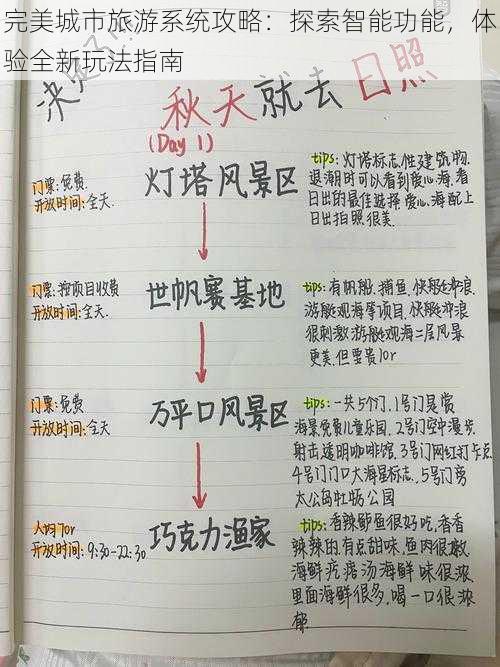 完美城市旅游系统攻略：探索智能功能，体
验全新玩法指南
秋天就去日照
(Day 1)
门票：免费.
开放时间：全天.
灯塔风景区
tips：灯塔标志性建筑物.
退潮时可以看到爱心海.看
日出的最佳选择.爱心海配上
日出拍照很美.
门票：按项目收费
开放时间：全天.
世帆赛基地
tips：有帆船.捕鱼.快艇冲浪.
游艇观海等项目.快艇冲浪
很刺激.游艇观海二层风景
更美.但要贵10r
门票：免费
开放时间：全天
万平口风景区
tips：一共5个门，1号门是赏
海景免费儿童乐园.2号门空中漫步.
射击.透明咖啡馆.3号门网红打卡点
4号门门口大海星标志.，5号门旁
太公岛牡蛎公园
人均70r
开放时间：9:30-22:30
巧克力渔家
tips：香辣鲅鱼很好吃.香香
辣辣的.有点甜味.鱼肉很嫩.
海鲜疙瘩汤海鲜味很浓
里面海鲜很多，喝一口很浓
郁